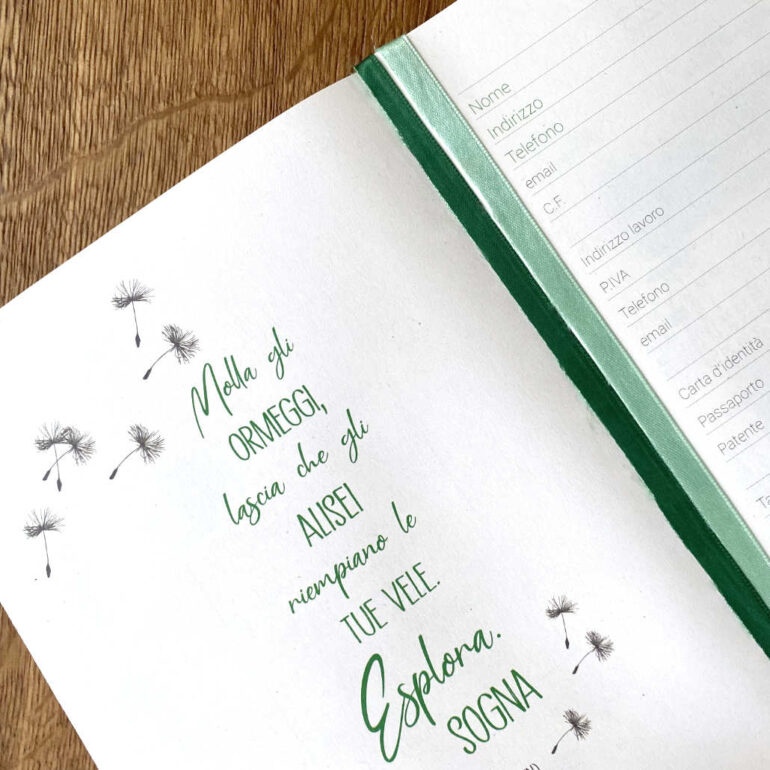 Molla gli
ORMEGGI,
lascia che gli
ALISEI
riempiano le
TUE VELE.
Esplora.
SOGNA
Nome
Indirizzo
Telefono
email
C.F.
Indirizzo lavoro
P.IVA
Telefono
email
Carta d'identità
Passaporto
Patente